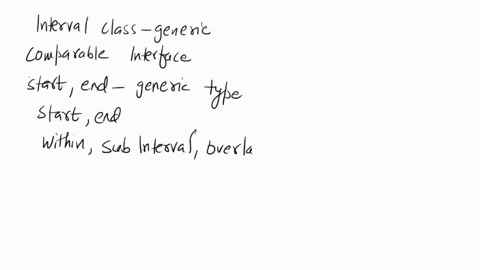 Interval class-generic
Comparable Interface
start, end - generic type
start, end
within, sub Interval, overla